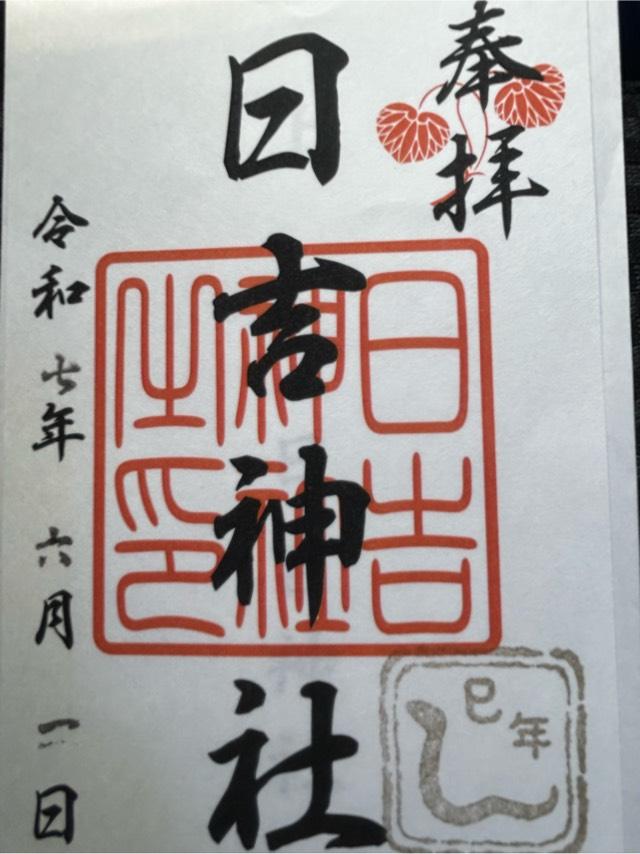 奉拝
日吉神社
日吉神社之印
巳年
令和七年六月一日